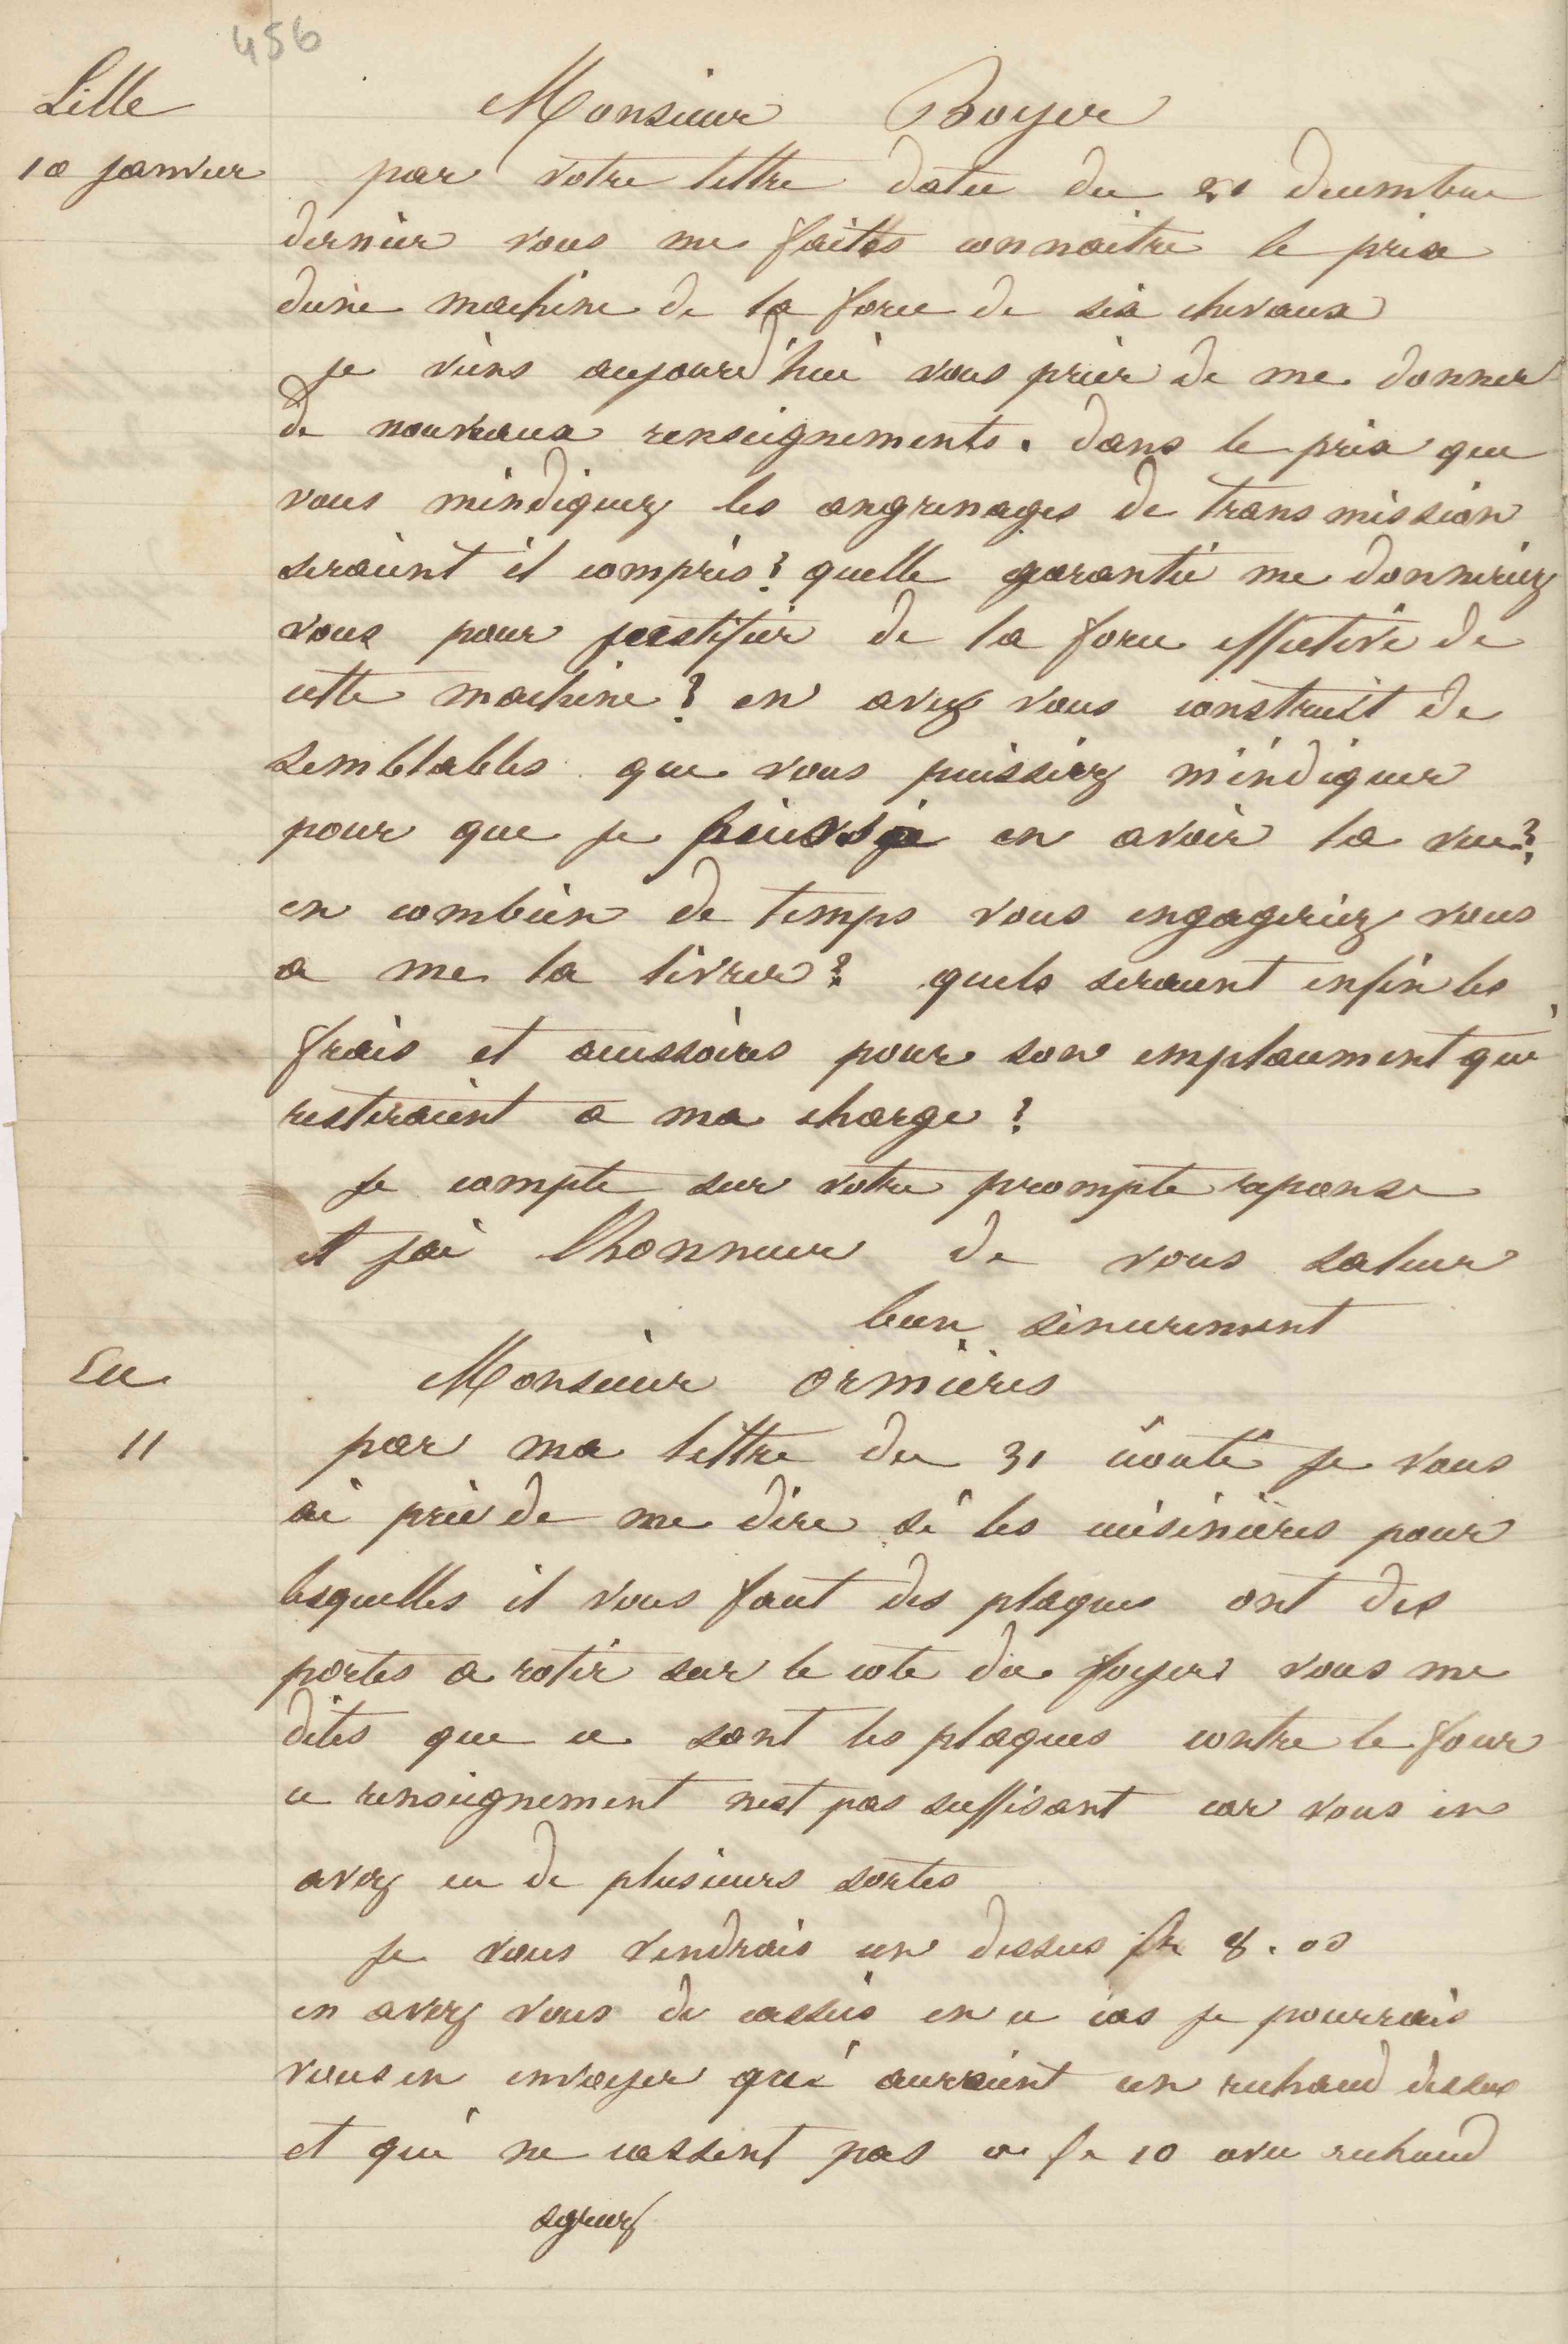 456
Lille
10 janvier
Monsieur Boyer
par votre lettre datee du decembre
dernier vous me faites connaitre le prix
dune machine de la force de six chevaux
je viens aujourd'hui vous prier de me donner
de nouveaux renseignements. dans le prix que
vous mindiquez les angrenages de transmission
seraient il compris? quelle garantie me donneriez
vous pour justifier de la force effective de
cette machine? en avez vous construit de
semblables que vous puissiez m'indiquer
pour que je puisse en avoir la vue?
en combien de temps vous engageriez vous
a me la livrer? quels seraient enfin les
frais et accessoires pour son emplacement qui
resteraient a ma charge?
je compte sur votre prompte reponse
et jai lhonneur de vous saluer
bien sincerement
Eu
11
Monsieur ormières
par ma lettre du 31 je vous
ai prié de me dire si les cuisinières pour
lesquelles il vous faut des plaques ont des
portes a rotir sur le cote du foyer vous me
dites que ce sont les plaques contre le four
ce renseignement nest pas suffisant car vous en
avez eu de plusieurs sortes
je vous vendrais un dessus fr 8.00
en avez vous de cassés en ce cas je pourrais
vous en envoyer qui auraient un rechaud dessus
et qui ne cassent pas a fr 10 avec rechaud